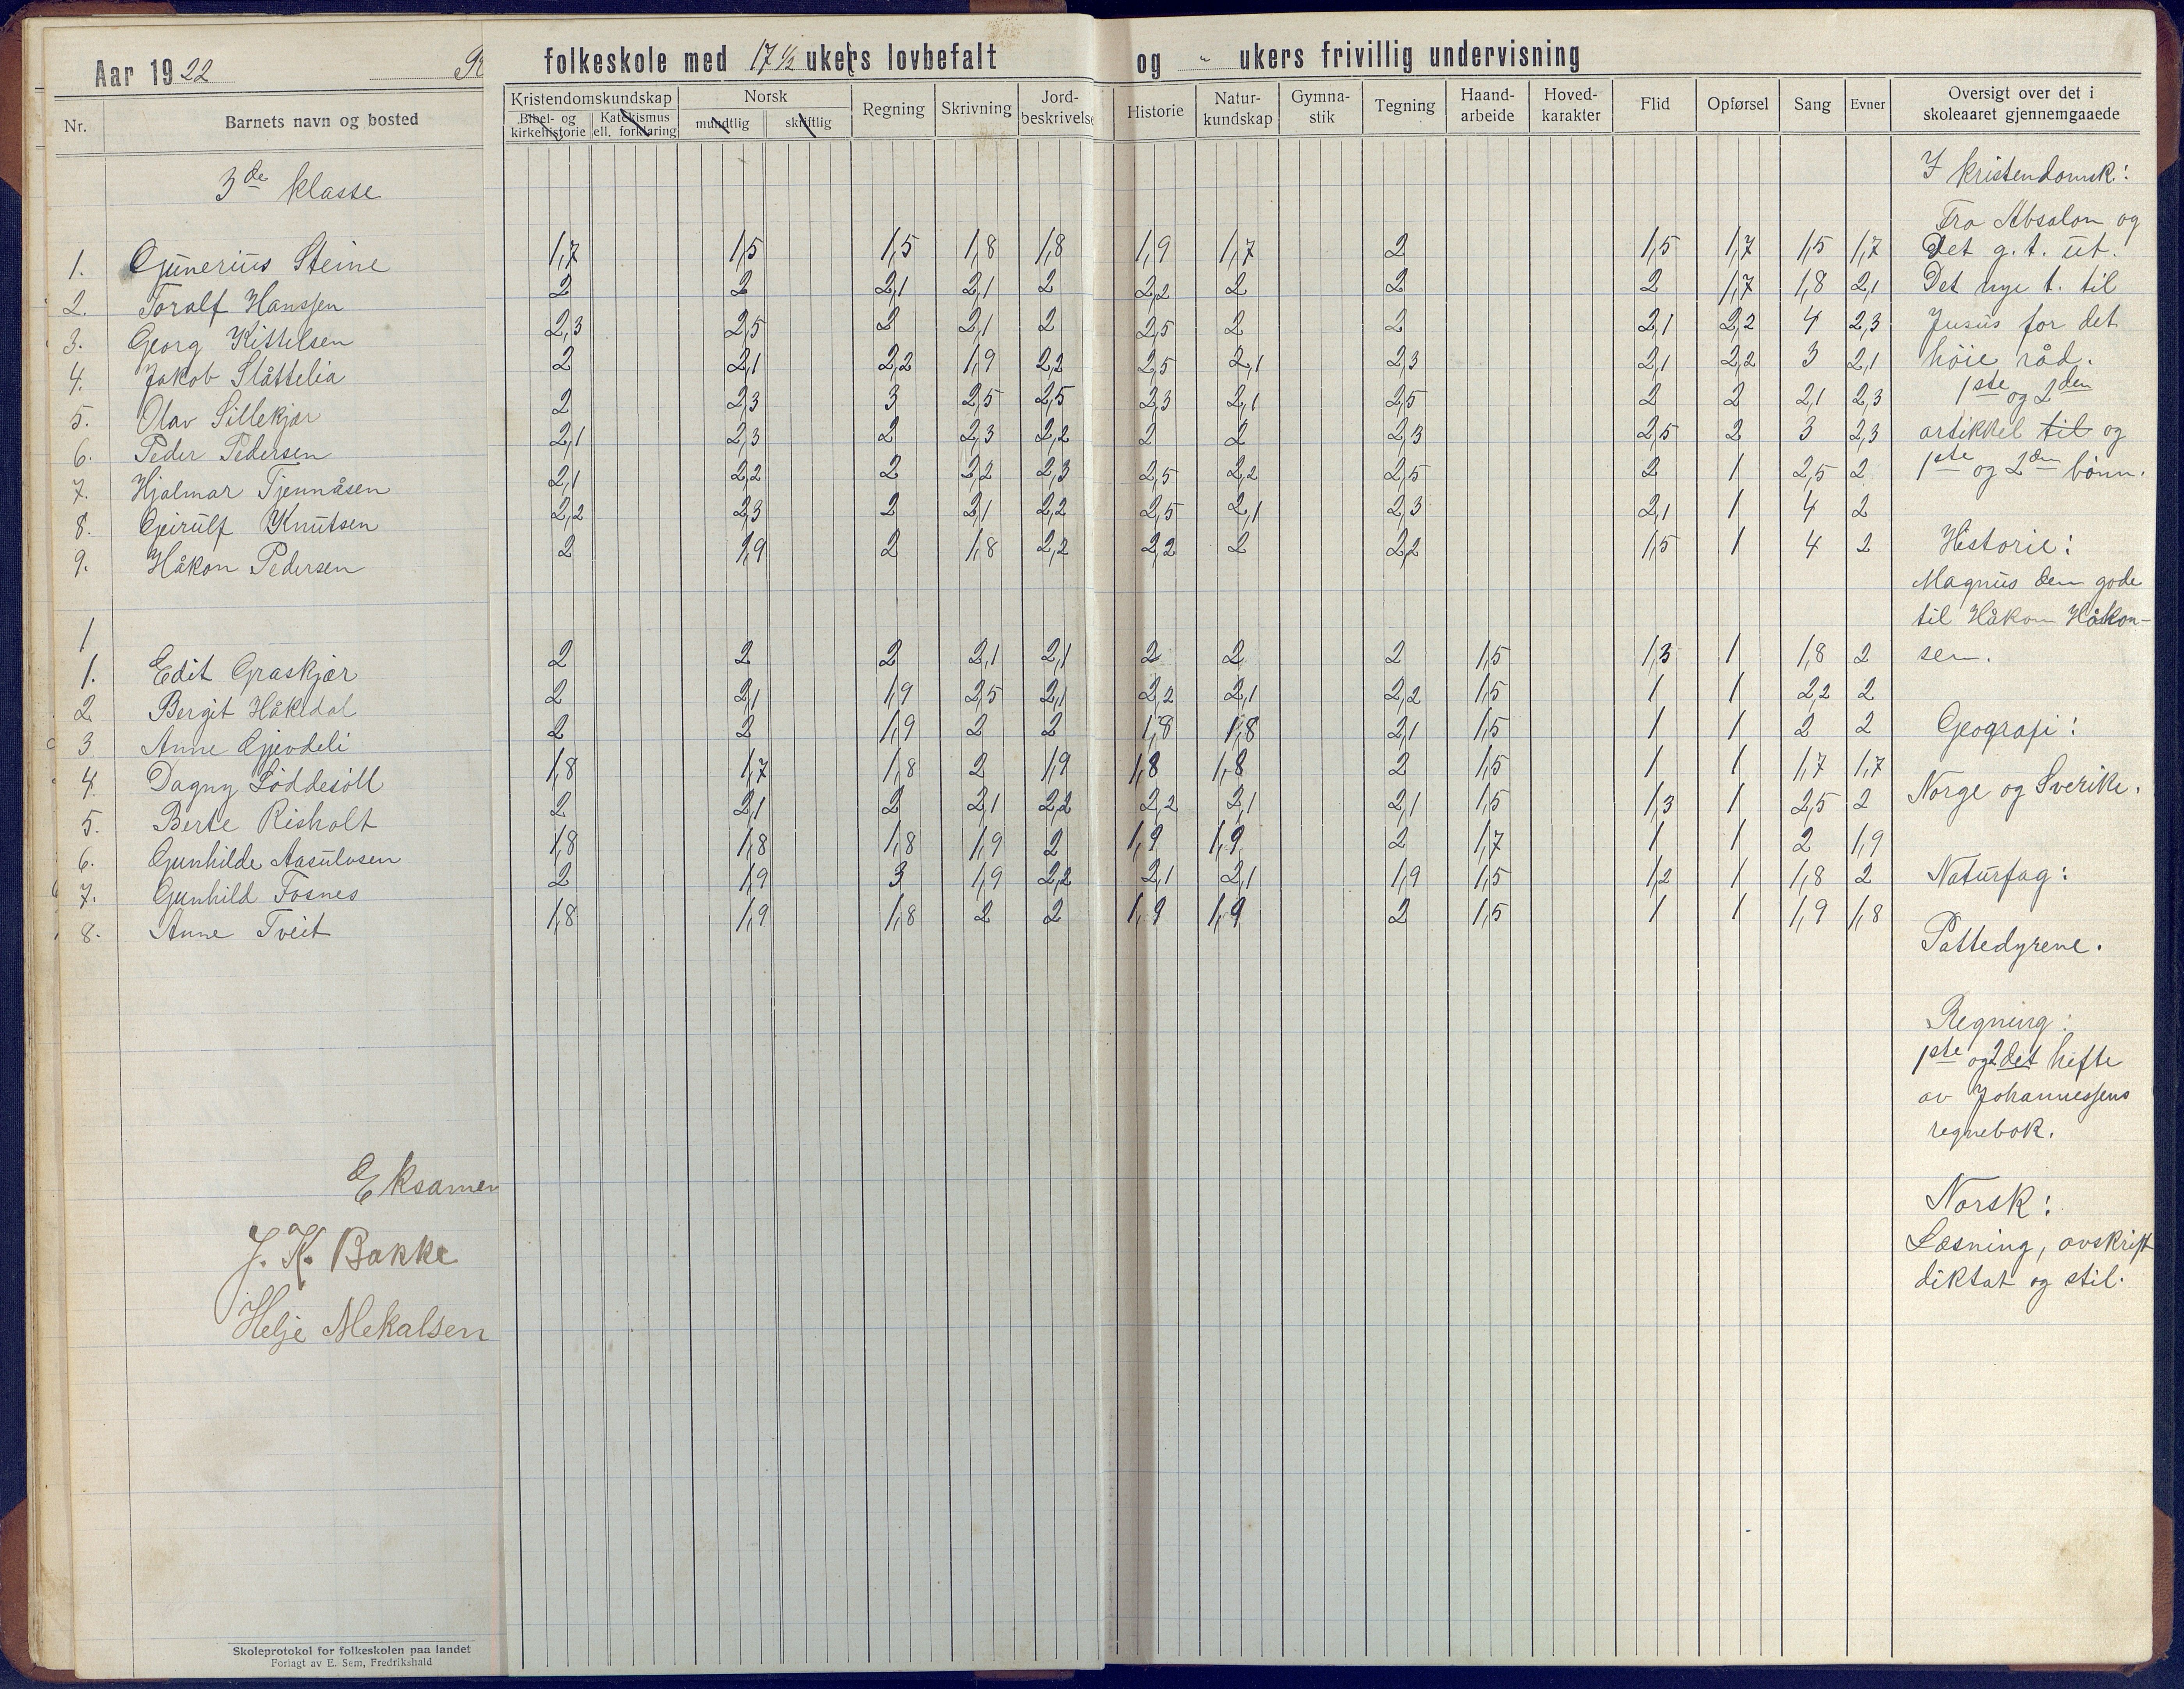 Aar 1922
folkeskole med 17 ½ ukers lovbefalt og " ukers frivillig undervisning
Nr. Barnets navn og bosted Kristendomskundskap Norsk Regning Skrivning Jord-beskrivelse Historie Natur-kundskap Gymna-stik Tegning Haand-arbeide Hoved-karakter Flid Opførsel Sang Evner Oversigt over det i skoleaaret gjennemgaaede
Bibel- og kirkehistorie Katekismus ell. forklaring mundtlig skriftlig
3de klasse
1. Gunerius Steine 1,7 1,5 1,5 1,8 1,8 1,9 1,7 2 1,5 1,7 1,5 1,7
2. Toralf Hanssen 2 2 2,1 2,1 2 2,2 2 2 2 1,7 1,8 2,1
3. Georg Kittelsen 2,3 2,5 2 2,1 2 2,5 2 2 2,1 2,2 4 2,3
4. Jakob Slåttelia 2 2,1 2,2 1,9 2,2 2,5 2,1 2,3 2,1 2,2 3 2,1
5. Olav Sillekjær 2 2,3 3 2,5 2,5 2,3 2,1 2,5 2 2 2,1 2,3
6. Peder Pedersen 2,1 2,3 2 2,3 2,2 2 2 2,3 2,5 2 3 2,3
7. Hjalmar Tjennåsen 2,1 2,2 2 2,2 2,3 2,5 2,2 2,5 2 1 2,5 2
8. Geirulf Knutsen 2,2 2,3 2 2,1 2,2 2,5 2,1 2,3 2,1 1 4 2
9. Håkon Pedersen 2 1,9 2 1,8 2,2 2,2 2 2,2 1,5 1 4 2
1
1. Edit Graskjær 2 2 2 2,1 2,1 2 2 2 1,5 1,3 1 1,8 2
2 Bergit Håkedal 2 2,1 1,9 2,5 2,1 2,2 2,1 2,2 1,5 1 1 2,2 2
3 Anne Gjevdeli 2 2 1,9 2 2 1,8 1,8 2,1 1,5 1 1 2 2
4. Dagny Løddesöll 1,8 1,7 1,8 2 1,9 1,8 1,8 2 1,5 1 1 1,7 1,7
5. Berte Risholt 2 2,1 2 2,1 2,2 2,2 2,1 2,1 1,5 1,3 1 2,5 2
6. Gunhilde Aasulvsen 1,8 1,8 1,8 1,9 2 1,9 1,9 2 1,7 1 1 2 1,9
7. Gunhild Fosnes 2 1,9 3 1,9 2,2 2,1 2,1 1,9 1,5 1,2 1 1,8 2
8. Anne Tveit 1,8 1,9 1,8 2 2 1,9 1,9 2 1,5 1 1 1,9 1,8
I kristendomsk:
Fra Absalon og
Det g. t. ut.
Det nye t. til
Jusus for det
høie råd.
1ste og 2den
artikkel til og
1ste og 2den bönn.
Historie:
Magnus den gode
til Håkon Håkon-
sen.
Geografi:
Norge og Sverike.
Naturfag:
Pattedyrene.
Regning:
1ste og 2det hefte
av Johannessens
regnebok.
Norsk:
Læsning, avskrift
diktat og stil.
Eksamen
J. K. Bakke
Helje Mekalsen
Skoleprotokol for folkeskolen paa landet
Forlagt av E. Sem, Fredrikshald